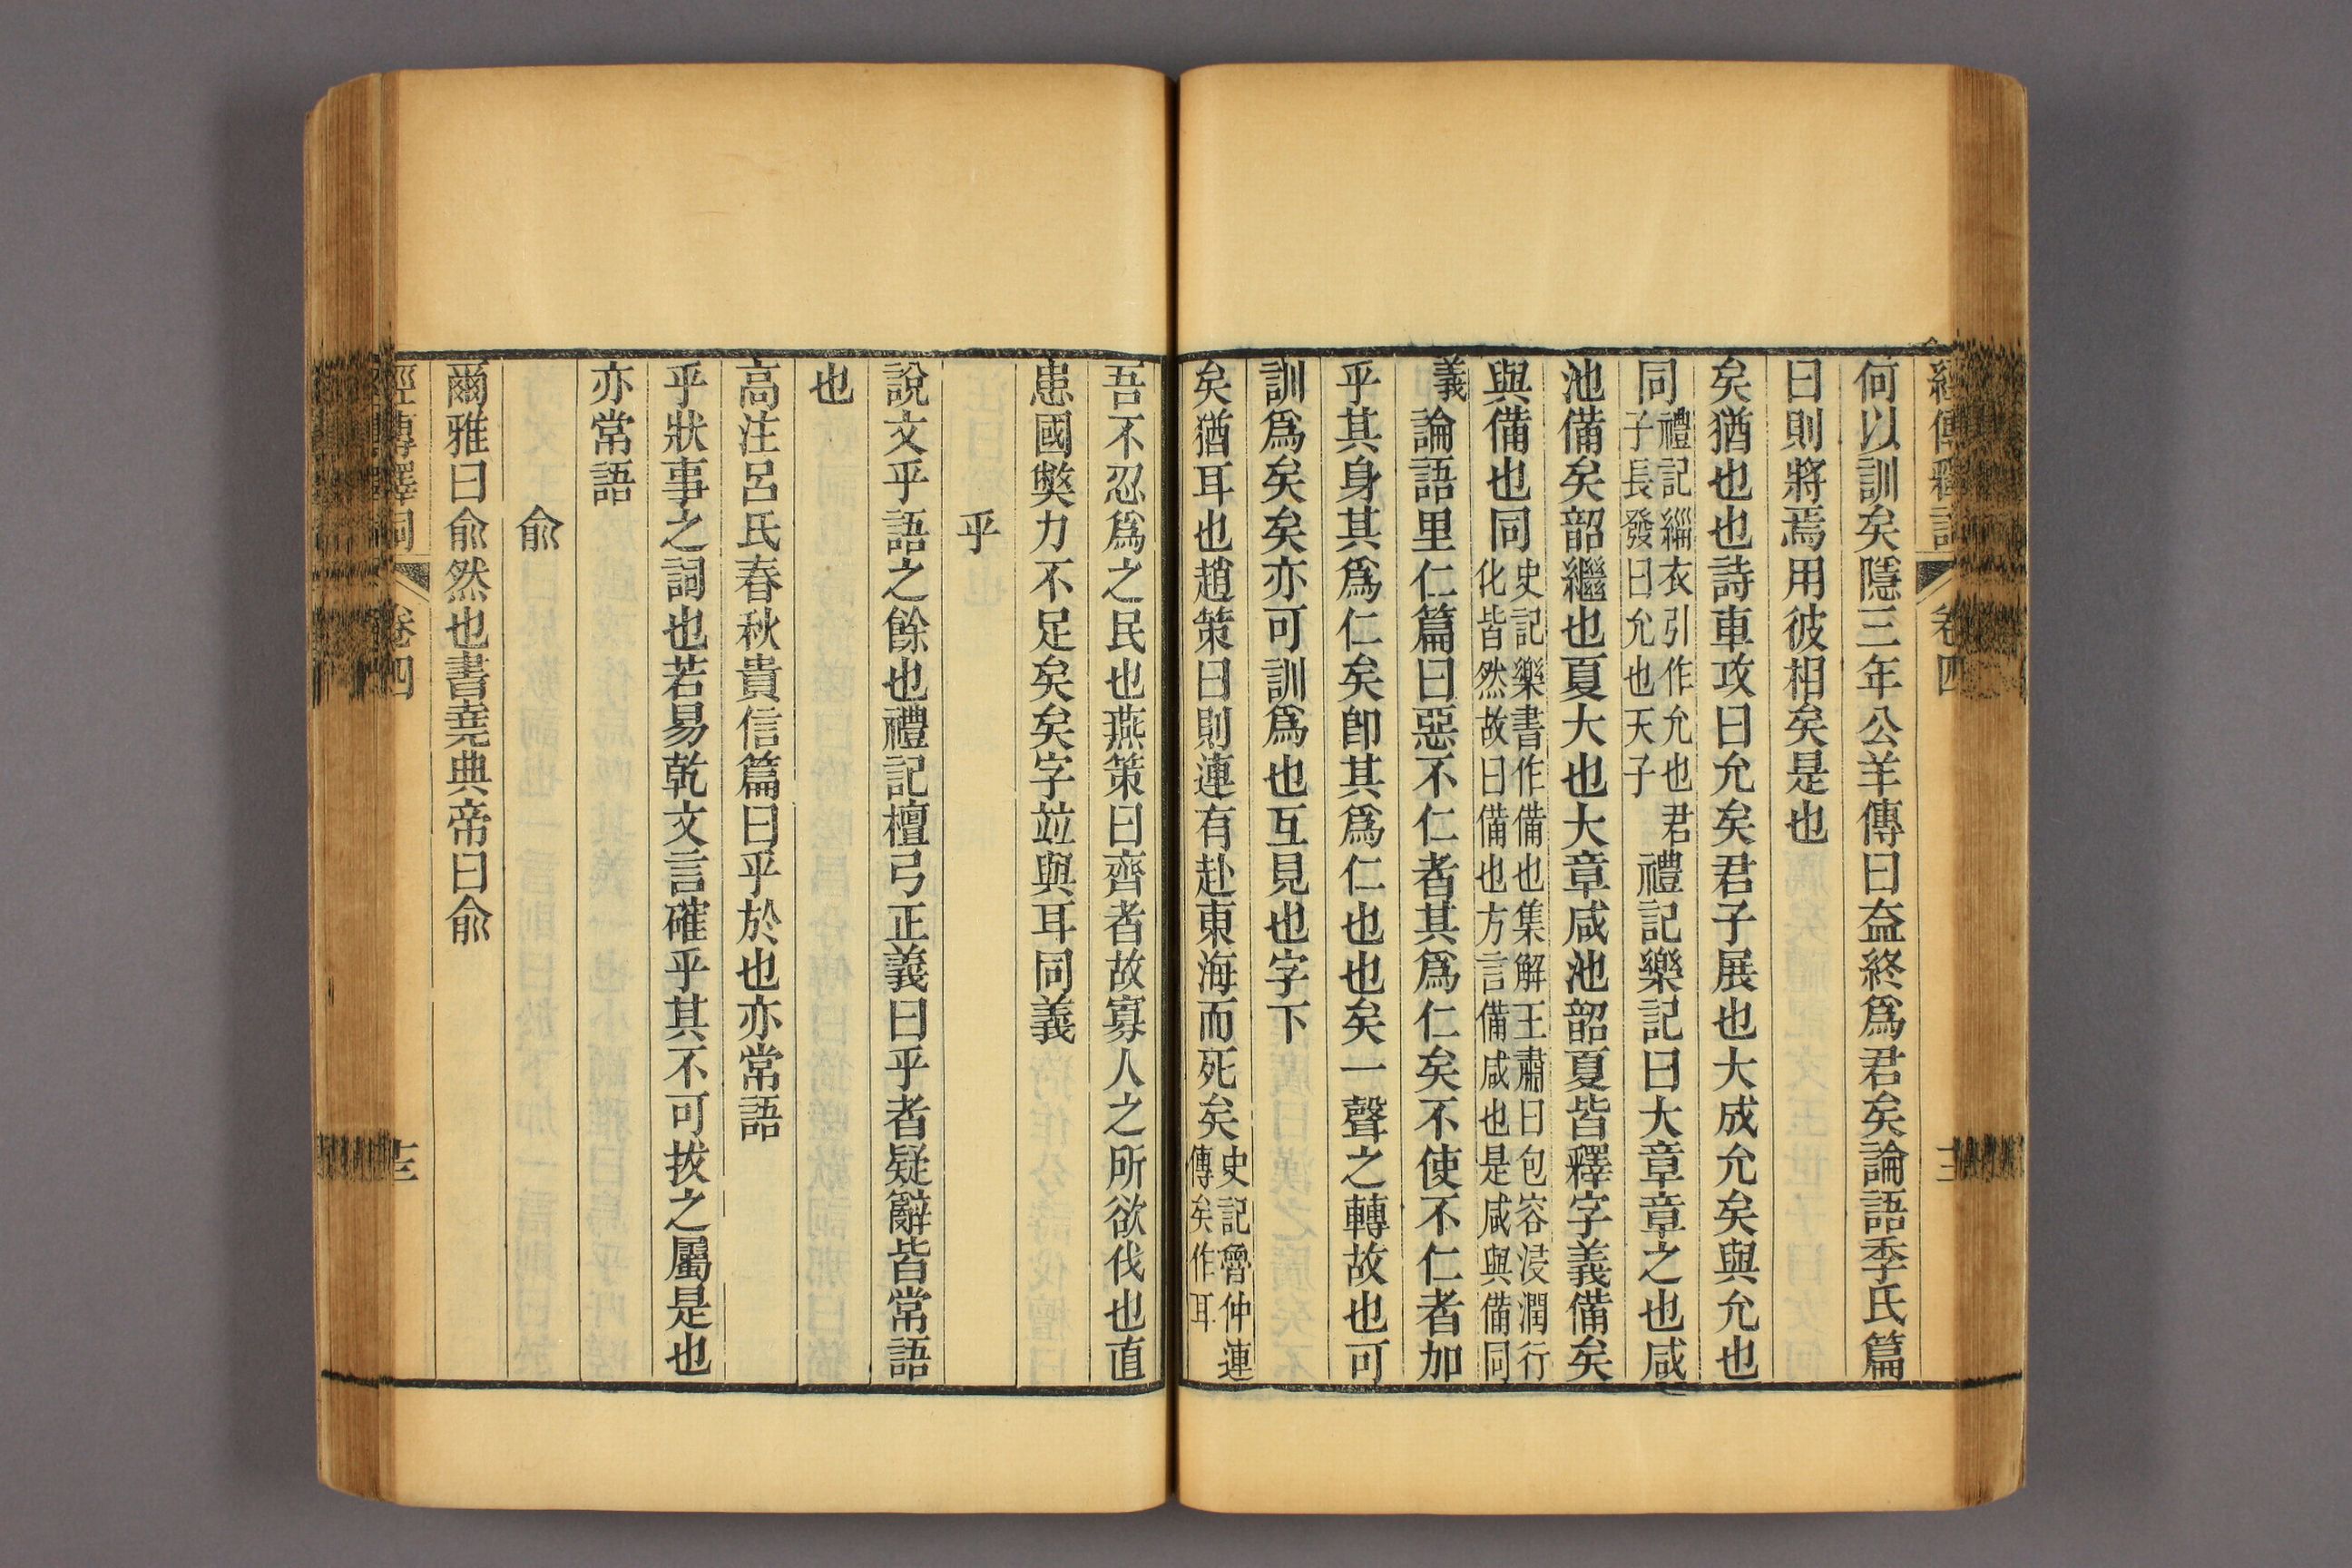 經傳釋詞 卷四
何以訓矣隱三年公羊傳曰盍終爲君矣論語季氏篇
曰則將焉用彼相矣是也
矣猶也也詩車攻曰允矣君子展也大成允矣與允也
同禮記緇衣引作允也君子長發曰允也天子禮記樂記曰大章章之也咸
池備矣韶繼也夏大也大章咸池韶夏皆釋字義備矣
與備也同史記樂書作備也集解王肅曰包容浸潤行化皆然故曰備也方言備咸也是咸與備同
義論語里仁篇曰惡不仁者其爲仁矣不使不仁者加
乎其身其爲仁矣卽其爲仁也也矣一聲之轉故也可
訓爲矣矣亦可訓爲也互見也字下
矣猶耳也趙策曰則連有赴東海而死矣史記魯仲連傳矣作耳
吾不忍爲之民也燕策曰齊者故寡人之所欲伐也直
患國獘力不足矣矣字竝與耳同義
乎
說文乎語之餘也禮記檀弓正義曰乎者疑辭皆常語
也
高注呂氏春秋貴信篇曰乎於也亦常語
乎狀事之詞也若易乾文言確乎其不可拔之屬是也
亦常語
俞
爾雅曰俞然也書堯典帝曰俞
經傳釋詞 卷四 十三